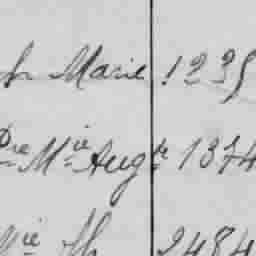 h Marie 1235
Pre Mie Augte 1374
Mie Th 2484